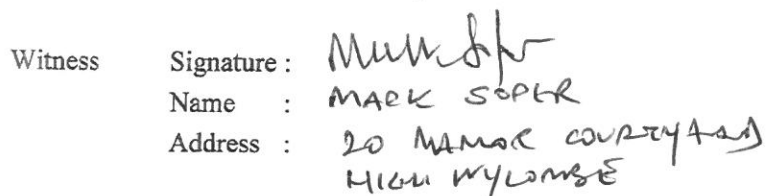 Witness Signature :
Name : MARK SOPER
Address : 20 MANOR COURTYARD
HIGH WYCOMBE